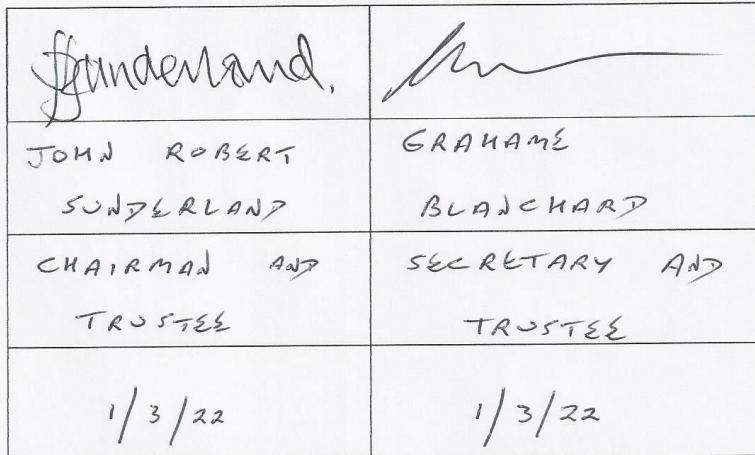 JSunderland.
JOHN ROBERT
SUNDERLAND
GRAHAME
BLANCHARD
CHAIRMAN AND
TRUSTEE
SECRETARY AND
TRUSTEE
1/3/22
1/3/22